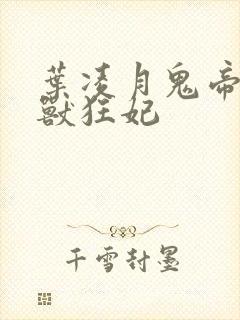 葉凌月鬼帝
獸狂妃
千雪封墨